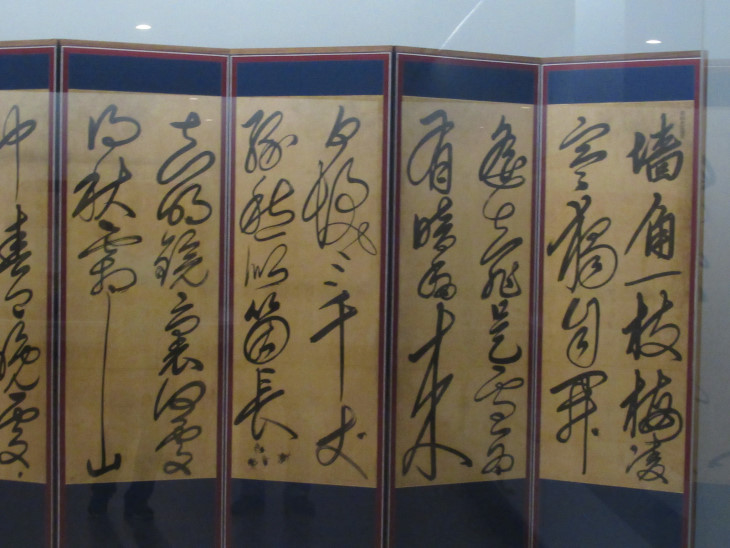 墻角一枝梅凌
寒獨自開
遙知不是雪為
有暗香來
白髮三千丈
緣愁似箇長不
知明鏡裏何處
得秋霜山
中春已晚處